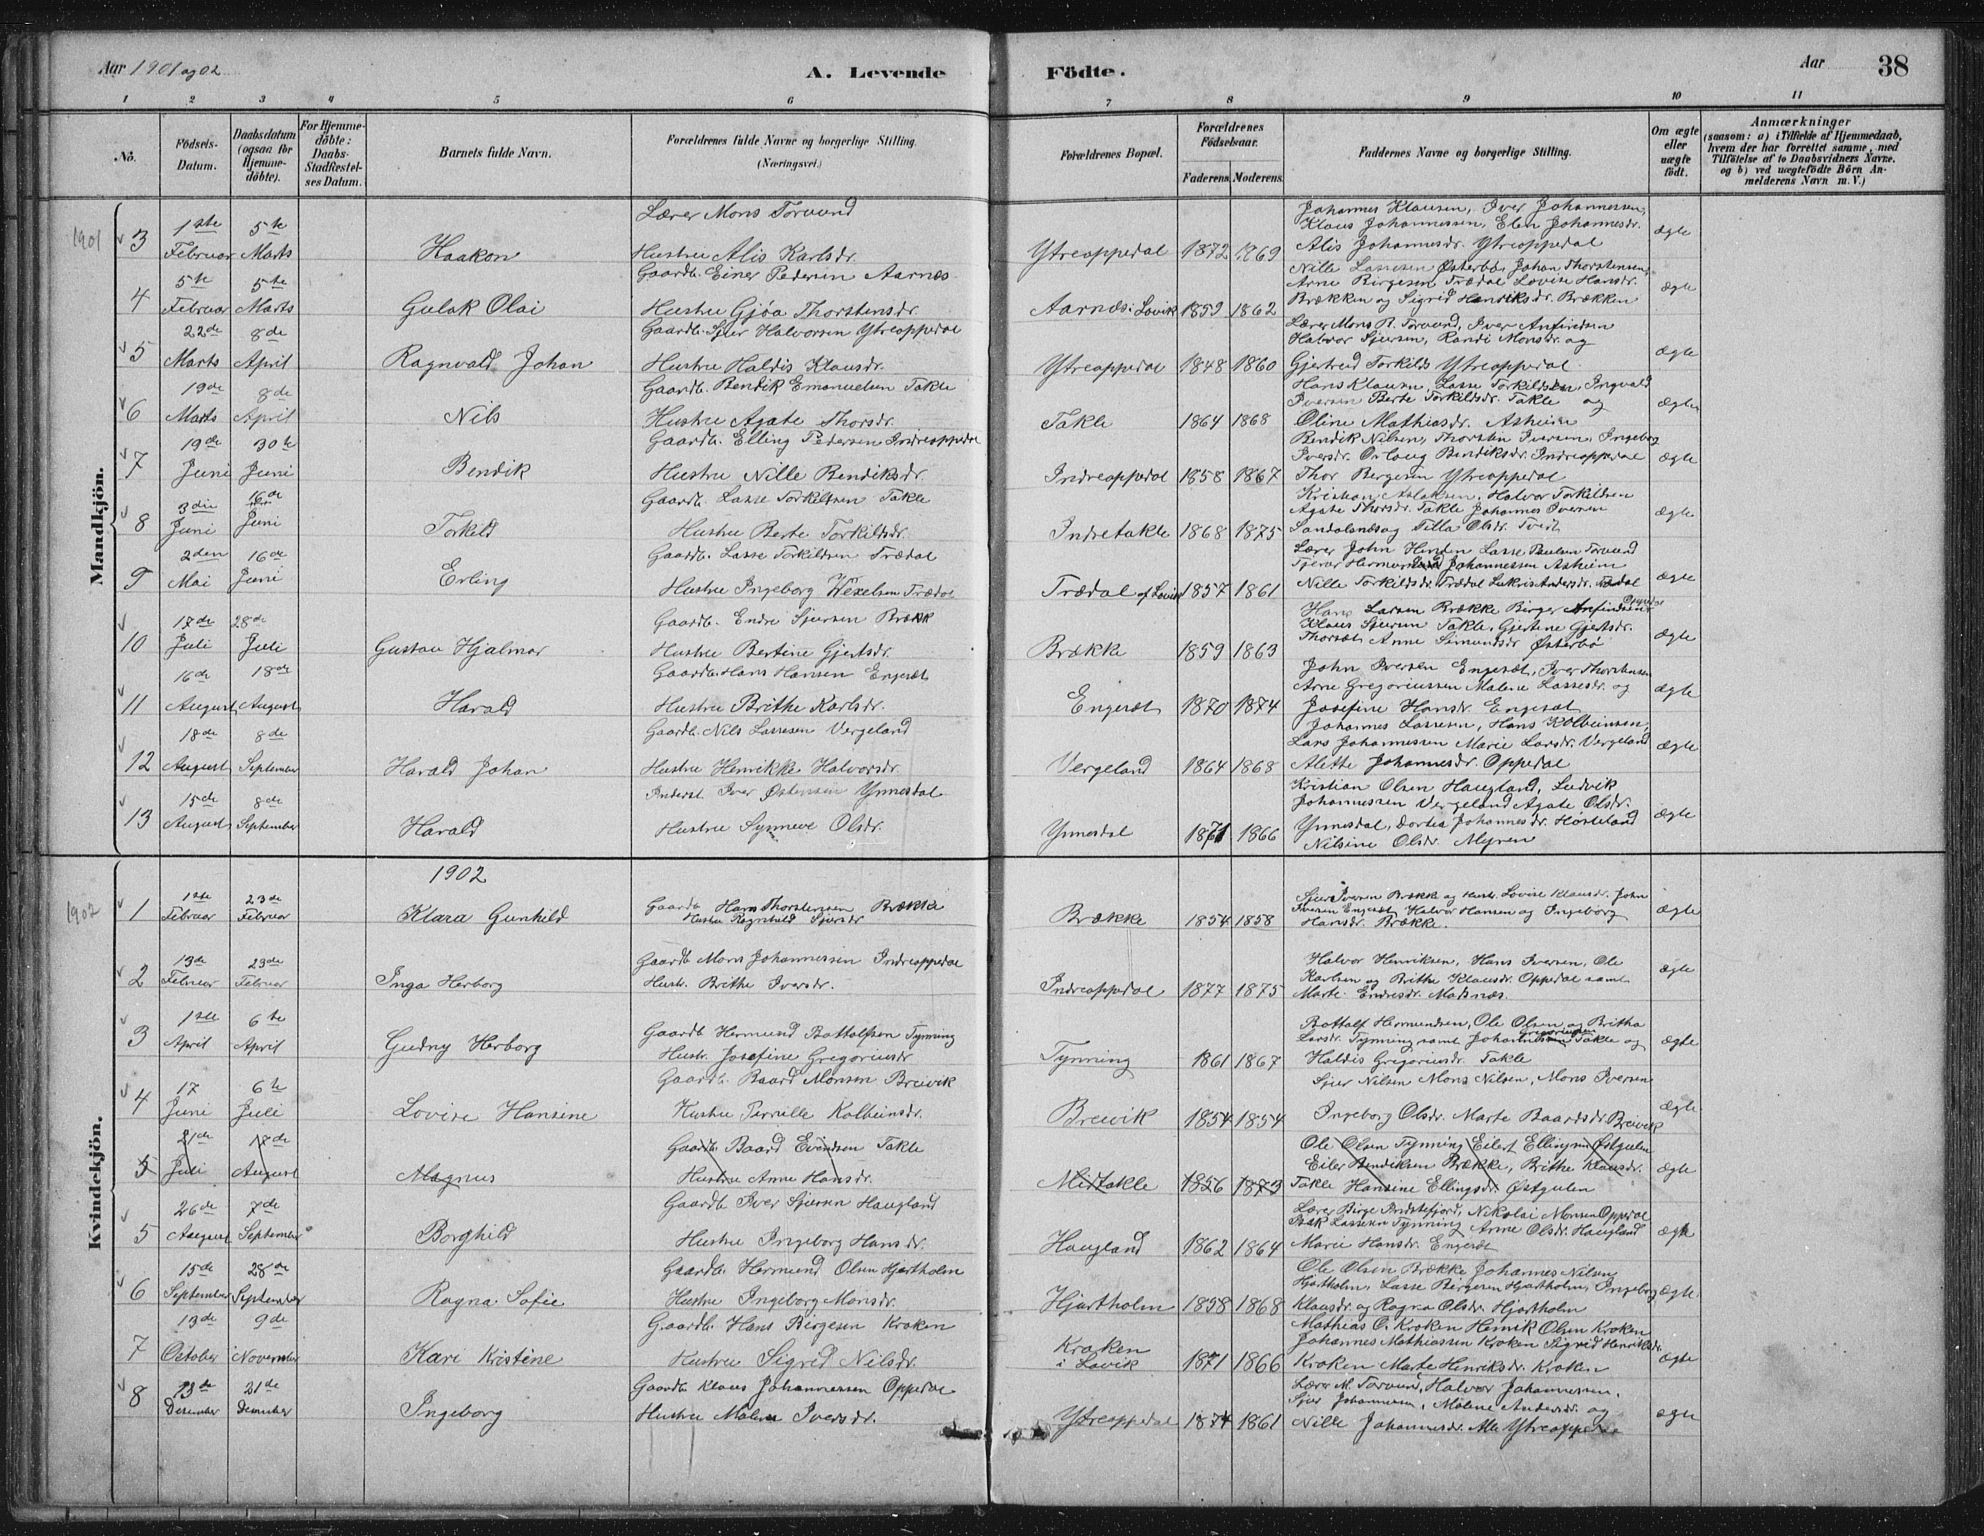 Aar 1901 og 02
A. Levende Födte.
Aar
38
1 2 3 4 5 6 7 8 9 10 11
No.
Födsels-Datum.
Daabsdatum (ogsaa for Hjemme-döbte).
For Hjemme-döbte: Daabs-Stadfæstel-ses Datum.
Barnets fulde Navn.
Forældrenes fulde Navne og borgerlige Stilling. (Næringsvei.)
Forældrenes Bopæl.
Forældrenes Födselsaar.
Faderens. Moderens.
Faddernes Navne og borgerlige Stilling.
Om ægte eller uægte födt.
Anmærkninger
(saasom: a) i Tilfælde af Hjemmedaab,
hvem der har forrettet samme, med
Tilföielse af to Daabsvidners Navne.
og b) ved uægtefödte Börn An-
melderens Navn m. V.)
Mandkjön.
1901
3 1ste Februar 5te Marts Haakon
Lærer Mons Torvund
Hustru Alis Karlsdr.
Ytreoppedal 1872 1869
Johannes Klausen, Iver Johannessen,
Klaus Johannessen, Elen Johannesdr.
Alis Johannesdr. Ytreoppedal
ægte
4 5te Februar 5te Marts Gulak Olai
Gaardb. Einer Pedersen Aarnæs
Hustru Gjøa Thorstensdr.
Aarnæs i Lavik 1859 1862
Nille Lassesen Østerbø, Johan Thorstensen,
Arne Birgesen Trædal Lovise Hansdr.
Brækken og Sigrid Henriksdr. Brækken
ægte
5 22de Marts 8de April Ragnvald Johan
Gaardb. Sjur Halvorsen Ytreoppedal
Hustru Haldis Klausdr.
Ytreoppedal 1848 1860
Lærer Mons R. Torvund, Iver Anfindsen
Halvor Sjursen, Randi Monsdr. og
Gjertrud Torkilds Ytreoppedal
ægte
6 19de Marts 8de April Nils
Gaardb. Bendik Emanuelsen Takle
Hustru Agate Thorsdr.
Takle 1864 1868
Hans Klausen, Lasse Torkildsen, Ingvald
Iversen Berte Torkildsdr. Takle og
Oline Mathiasdr. Asheim
ægte
7 19de Juni 30te Juni Bendik
Gaardb. Elling Pedersen Indreoppedal
Hustru Nille Bendiksdr.
Indreoppedal 1858 1867
Bendik Nilsen, Thorsten Iversen, Ingeborg
Iversdr. Orlaug Bendiksdr. Indreoppedal
Thor Bergesen Ytreoppedal
ægte
8 3die Juni 16de Juni Torkeld
Gaardb. Lasse Torkildsen Takle
Hustru Berte Torkildsdr.
Indretakle 1868 1875
Kristian Aslaksen, Halvor Torkildsen
Agate Thorsdr. Takle Johannes Iversen
Sandalandsog Silla Olsdr. Tvedt
ægte
9 2den Mai 16de Juni Erling
Gaardb. Lasse Torkildsen Trædal
Hustru Ingeborg Wexelsen Trædal
Trædal af Lavik 1857 1861
Lærer John Henden Lasse Paulsen Torvund
Johannessen Asheim
Nille Torkildsdr. Trædal Andersdr. Trædal
ægte
10 17de Juli 28de Juli Gustav Hjalmar
Gaardb. Endre Sjursen Brækk
Hustru Bertine Gjertsdr.
Brække 1859 1863
Hans Larsen Brække Birger Anfindsen Oppedal
Klaus Sjursen Takle, Gjertine Gjertsdr.
Thorsæt, Anne Simundsdr Østerbø
ægte
11 16de August 18de August Harald
Gaardb. Hans Hansen Engesæt
Hustru Brithe Karlsdr.
Engesæt 1870 1874
John Iversen Engesæt, Iver Thorstensen
Arne Gregoriussen Malene Lassesdr. og
Josefine Hansdr. Engesæt
ægte
12 18de August 8de September Harald Johan
Gaardb. Nils Lassesen Vergeland
Hustru Henrikke Halvorsdr.
Vergeland 1864 1868
Johannes Lassesen, Hans Kolbeinsen,
Lars Johannessen Marie Larsdr. Vergeland
Alette Johannesdr. Oppedal
ægte
13 15de August 8de September Harald
Inderst. Iver Østensen Ynnesdal
Hustru Synneve Olsdr.
Ynnesdal 1871 1866
Kristian Olsen Haugland, Ludvik
Johannessen Vergeland Agate Olsdr.
Ynnesdal, Dortea Johannesdr. Hosteland
Nilsine Olsdr. Myren
ægte
1902
Kvindekjön.
1902
1 1ste Februar 23de Februar Klara Gunhild
Gaardb Hans Thorstensen Brække
Hustru Ragnhild Sjursdr
Brække 1854 1858
Sjur Iversen Brække og Hustr. Lovise Klausdr. John
Iversen Engesæt, Halvor Hansen og Ingeborg
Hansdr. Brække.
ægte
2 13de Februar 23de Februar Inga Herborg
Gaardb Mons Johannessen Indreoppedal
Hustr. Brithe Iversdr.
Indreoppedal 1877 1875
Halvor Henriksen, Hans Iversen, Ole
Karlsen og Brithe Klausdr. Oppedal samt
Marte Endresdr. Madsnæs.
ægte
3 1ste April 6te April Gudny Herborg
Gaardb Hermund Bottolfsen Tynning
Hustr. Josefine Gregoriusdr
Tynning 1861 1867
Bottolf Hermundsen, Ole Olsen og Britha
Larsdr. Tynning samt Johannes Gregoriussen Takle og
Haldis Gregoriusdr. Takle
ægte
4 17 Juni 6te Juli Lovise Hansine
Gaardb Baard Monsen Breivik
Hustru Pernille Kolbeinsdr.
Breivik 1854 1854
Sjur Nilsen Mons Nilsen, Mons Iversen
Ingeborg Olsdr. Marte Baardsdr. Breivik
ægte
5 21de Juli 18de August Magnus
Gaardb Baard Evindsen Takle
Hustru Anne Hansdr.
Midtakle 1856 1873
Ole Olsen Tynning, Eilert Ellingsen Østgulen
Eiler Bendiksen Brække, Brithe Klausdr.
Takle Hansine Ellingsdr. Østgulen
ægte
5 26de August 7de September Borghild
Gaardb Iver Sjursen Haugland
Hustru Ingeborg Hansdr.
Haugland 1862 1864
Lærer Birge Indrefjord, Nikolai Monsen Oppedal
Isak Lassesen Tynning Anne Olsdr. Haugland
Marie Hansdr. Engesæt
ægte
6 15de September 28de September Ragna Sofie
Gaardb. Hermund Olsen Hjartholm
Hustru Ingeborg Monsdr.
Hjartholm 1858 1868
Ole Olsen Brække Johannes Nilsen
Hjartholm, Lasse Bergesen Hjartholm, Ingeborg
Klausdr. og Ragna Olsdr. Hjartholm
ægte
7 13de October 9de November Kari Kristine
Gaardb. Hans Bergesen Kroken
Hustru Sigrid Nilsdr.
Kroken i Lavik 1871 1866
Mathias O. Kroken Henrik Olsen Kroken
Johannes Mathiassen Kroken Sigrid Henriksdr.
Kroken Marte Henriksdr. Kroken
ægte
8 13de Desember 21de Desember Ingeborg
Gaardb Klaus Johannessen Oppedal
Hustru Malene Iversdr.
Ytreoppedal 1874 1861
Lærer M. Torvund, Halvor Johannessen,
Sjur Johannessen, Malene Andersdr. og
Nille Johannesdr. Alle Ytreoppedal
ægte